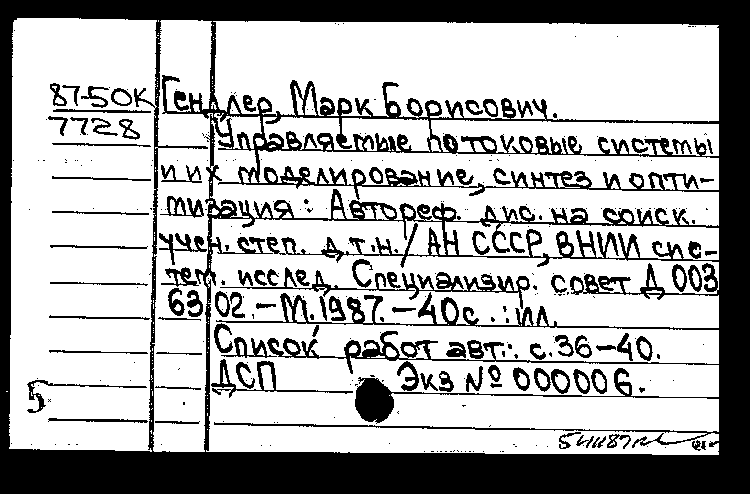 87-50К Гендлер, Марк Борисович.
7728 Управляемые потоковые системы
и их моделирование, синтез и опти-
мизация: Автореф. дис. на соиск.
учен. степ. д.т.н./ АН СССР, ВНИИ сис-
тем. исслед. Специализир. совет Д 003
63 02.-М.1987.-40с.:ил.
Список работ авт.: с.36-40.
ДСП Экз № 000006.
5